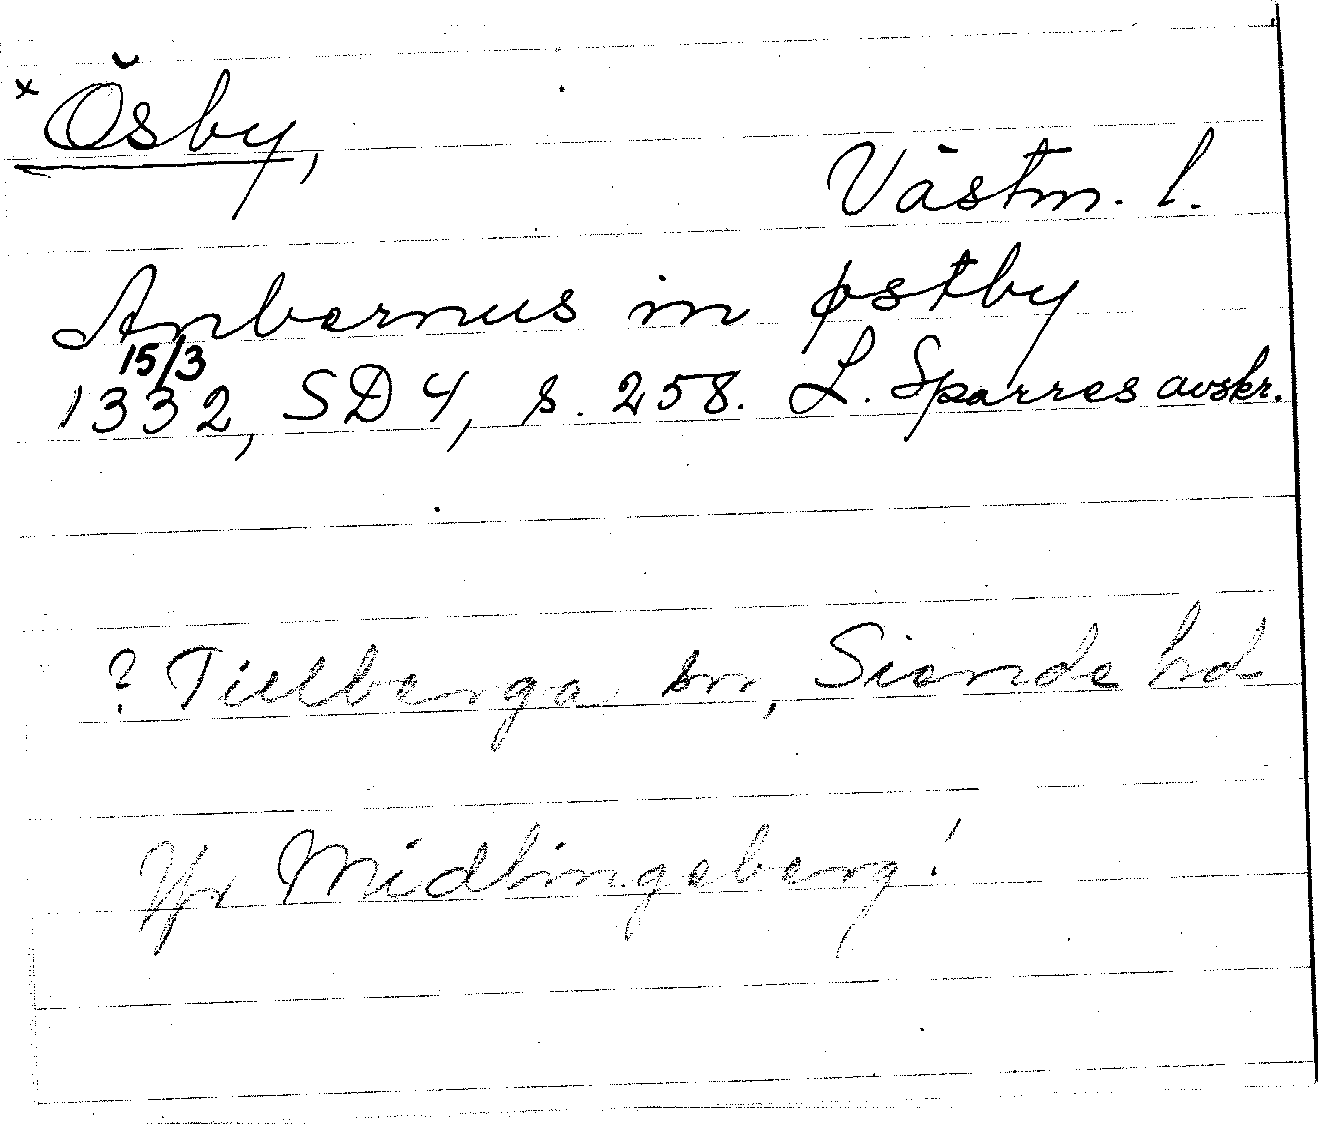 × Ösby,
Västm. l.
Anbernus in østby
15/3
1332, SD 4, s. 258. L. Sparres avskr.
? Tillberga sn, Siende hd
Jfr Midlingeberg!